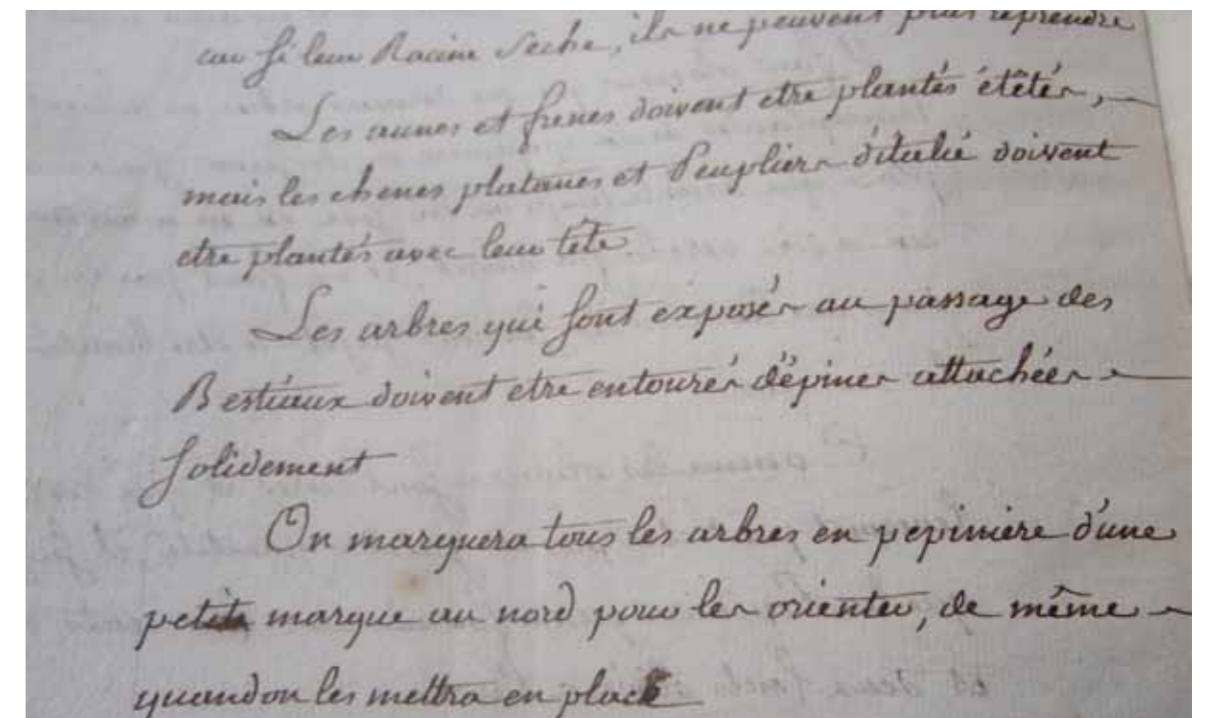 car si leur Racine Seche, ils ne peuvent plus reprendre
Les aunes et frenes doivent etre plantés étêtés,
mais les chenes platanes et Peupliers d'italie doivent
etre plantés avec leur tête.
Les arbres qui sont exposés au passage des
Bestiaux doivent etre entourés d'épines attachées
solidement
On marquera tous les arbres en pepiniere d'une
petite marque au nord pour les orienter, de même
quand on les mettra en place